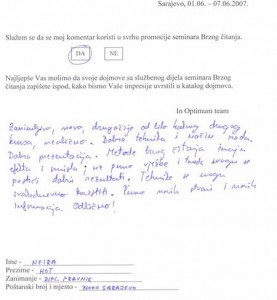 Sarajevo, 01.06. – 07.06.2007.
Slažem se da se moj komentar koristi u svrhu promocije seminara Brzog
čitanja.
DA NE
Najljepše Vas molimo da svoje dojmove za službenog dijela seminara Brzog
čitanja zapišete ispod, kako bismo Vaše impresije uvrstili u katalog dojmova.
In Optimum team
Zanimljivo, novo, drugačije od bilo kakvog drugog
kursa, odlično. Dobra tehnika i način rada.
Dobra prezentacija. Metode brzog čitanja imaju
efekta i smisla; uz puno vježbe i truda mogu se
postići dobri rezultati. Tehnike se mogu
svakodnevno koristiti. Puno novih stvari i novih
informacija. Odlično!
Ime - NEIRA
Prezime - HOT
Zanimanje - DIPL. PRAVNIK
Poštanski broj i mjesto - NOVO SARAJEVO